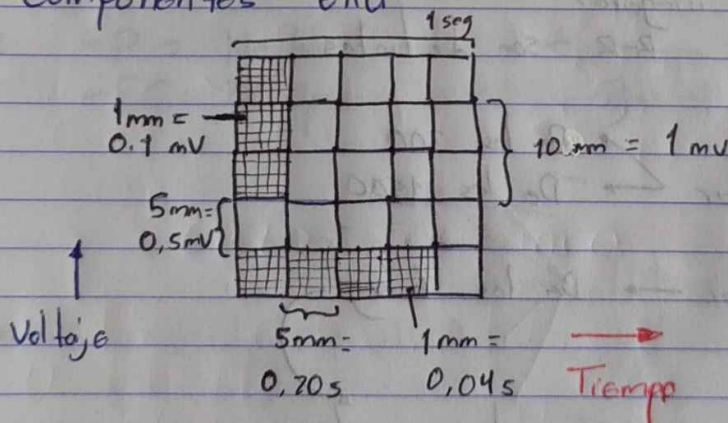 Componentes
1 seg
1mm =
0.1 mV
10 mm = 1 mV
5mm=
0,5mV
Voltaje
5mm=
0,20s
1mm =
0,04s
Tiempo